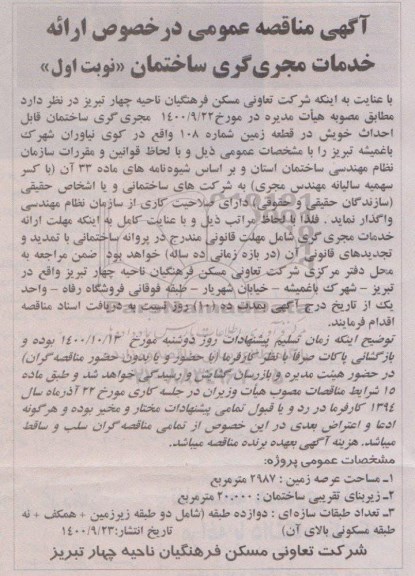 آگهی مناقصه عمومی درخصوص ارائه
خدمات مجری‌گری ساختمان «نوبت اول»
با عنایت به اینکه شرکت تعاونی مسکن فرهنگیان ناحیه چهار تبریز در نظر دارد
مطابق مصوبه هیأت مدیره در مورخ ۱۴۰۰/۹/۲۲ مجری‌گری ساختمان قابل
احداث خویش در قطعه زمین شماره ۱۰۸ واقع در کوی نیاوران شهرک
باغمیشه تبریز را با مشخصات عمومی ذیل و با لحاظ قوانین و مقررات سازمان
نظام مهندسی ساختمان استان و بر اساس شیوه‌نامه های ماده ۳۳ آن (با کسر
سهمیه سالیانه مهندس مجری) به شرکت های ساختمانی و یا اشخاص حقیقی
(سازندگان حقیقی و حقوقی) دارای صلاحیت کاری از سازمان نظام مهندسی
واگذار نماید . فلذا با لحاظ مراتب ذیل و با عنایت کامل به اینکه مهلت ارائه
خدمات مجری گری شامل مهلت قانونی مندرج در پروانه ساختمانی با تمدید و
تجدیدهای قانونی آن (در بازه زمانی ده ساله) خواهد بود ضمن مراجعه به
محل دفتر مرکزی شرکت تعاونی مسکن فرهنگیان ناحیه چهار تبریز واقع در
تبریز – شهرک باغمیشه – خیابان شهریار – طبقه فوقانی فروشگاه رفاه – واحد
یک از تاریخ درج آگهی بمدت ده (۱۰) روز نسبت به دریافت اسناد مناقصه
اقدام فرمایند.
توضیح اینکه زمان تسلیم پیشنهادات روز دوشنبه مورخ ۱۴۰۰/۱۰/۱۳ بوده و
بازگشائی پاکات صرفاً با نظر کارفرما (با حضور و یا بدون حضور مناقصه گران)
در حضور هیئت مدیره و بازرسان گشایش و رسیدگی خواهد شد و طبق ماده
۱۵ شرایط مناقصات مصوب هیأت وزیران در جلسه کاری مورخ ۲۲ آذرماه سال
۱۳۹۴ کارفرما در رد و یا قبول تمامی پیشنهادات مختار و مخیر بوده و هرگونه
ادعا و اعتراض بعدی در این خصوص از تمامی مناقصه گران سلب و ساقط
میباشد. هزینه آگهی بعهده برنده مناقصه میباشد.
مشخصات عمومی پروژه:
۱ـ مساحت عرصه زمین : ۲۹۸۷ مترمربع
۲ـ زیربنای تقریبی ساختمان : ۲۰.۰۰۰ مترمربع
۳ـ تعداد طبقات سازه‌ای : دوازده طبقه (شامل دو طبقه زیرزمین + همکف + نه
طبقه مسکونی بالای آن) تاریخ انتشار: ۱۴۰۰/۹/۲۳
شرکت تعاونی مسکن فرهنگیان ناحیه چهار تبریز